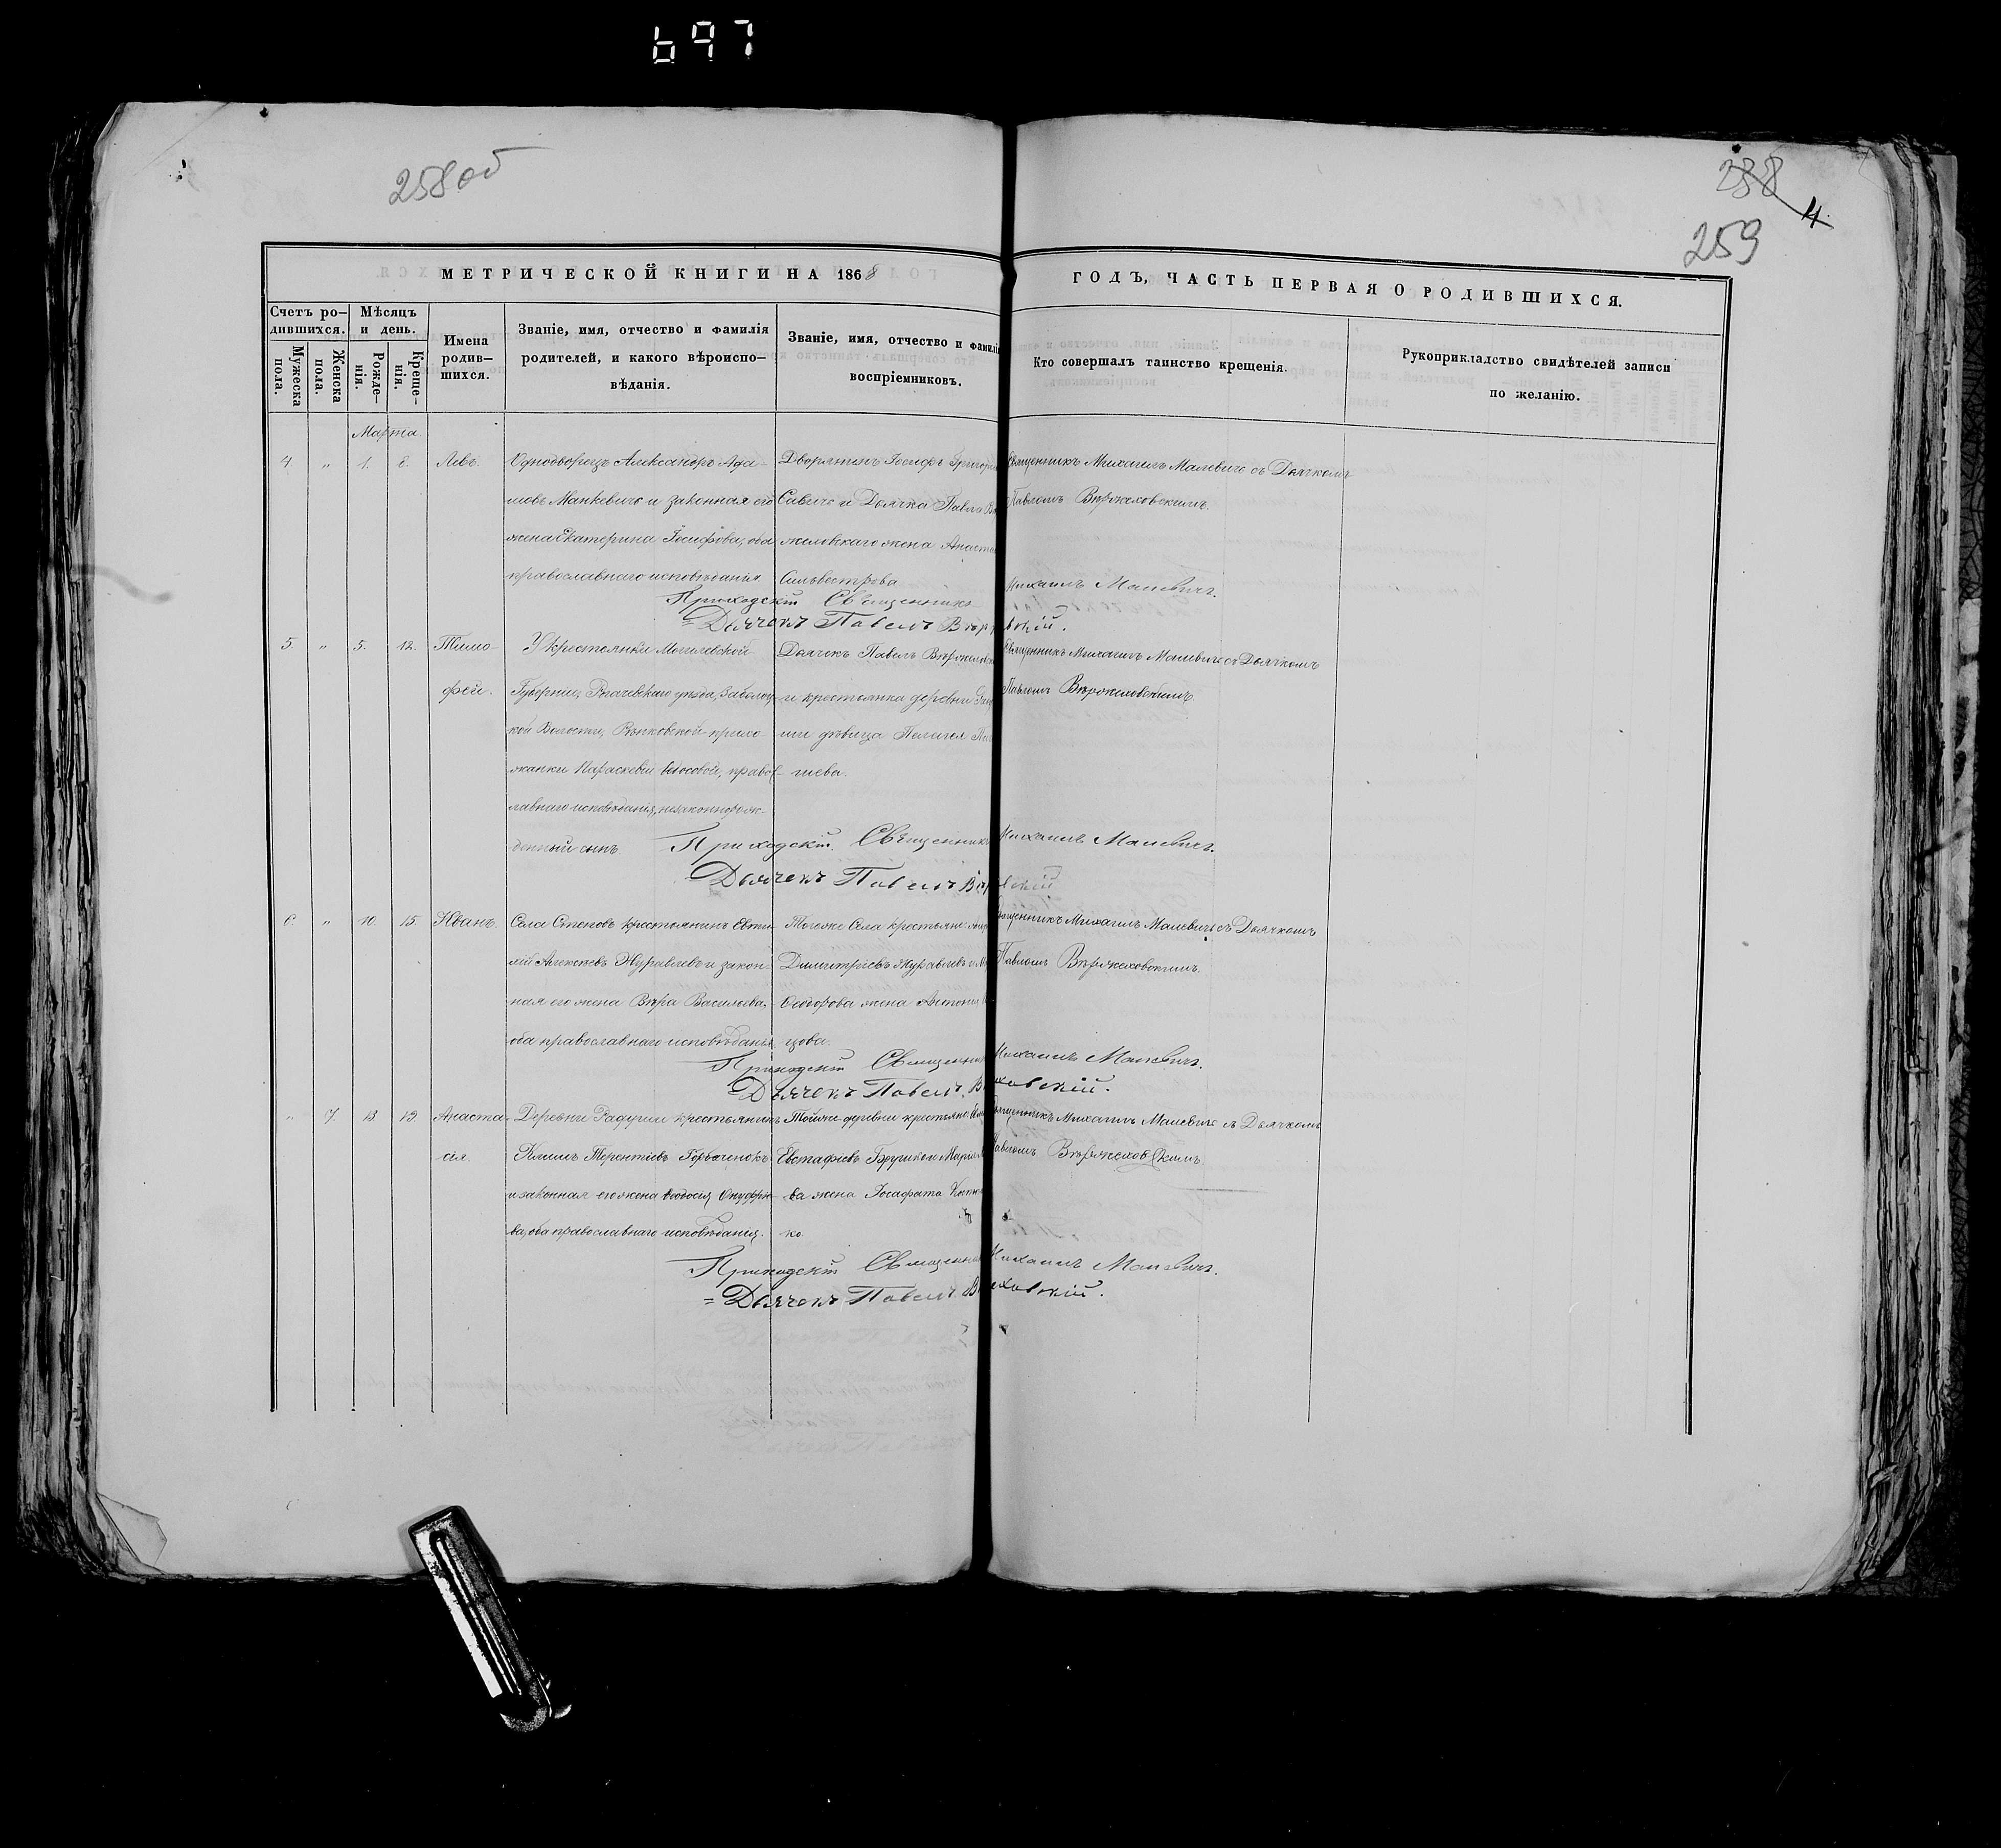 697
258об
238
4
259
МЕТРИЧЕСКОЙ КНИГИ НА 1868
ГОДЪ, ЧАСТЬ ПЕРВАЯ О РОДИВШИХСЯ.
Счетъ ро-
дившихся.
Мужеска
пола.
Женска
пола.
Мѣсяцъ
и день.
Рожде-
нія.
Креще-
нія.
Имена
родив-
шихся.
Званіе, имя, отчество и фамилія
родителей, и какого вѣроиспо-
вѣданія.
Званіе, имя, отчество и фамилі
воспріемниковъ.
Кто совершалъ таинство крещенія.
Рукоприкладство свидѣтелей записи
по желанію.
Марта.
4. " 1. 8. Левъ.
Однодворецъ Александръ Ада-
мовъ Манкевичъ и законная его
жена Екатерина Іосифова, оба
православнаго исповѣданія
Дворянинъ Іосифъ Григорь
Савичъ и Дьячка Павла
жховскаго жена Анаста
Сильвестрова
Священникъ Михаилъ Малевичъ съ Дьячкомъ
Павломъ Вержеховскимъ.
Приходскій Священникъ Михаилъ Малевичъ.
Дьячокъ Павелъ
5. " 5. 12. Тимо-
фей.
У крестьянки Могилевской
Губерніи, Рогачевскаго уѣзда, Заболоц-
кой Волости, прихо-
жанки Параскевіи православ-
лавнаго исповѣданія, незаконнорож-
денный сынъ.
Дьячокъ Павелъ
и крестьянка деревни
дѣвица Пелагея
Священникъ Михаилъ Малевичъ съ Дьячкомъ
Павломъ Вержеховскимъ.
Приходскій Священникъ Михаилъ Малевичъ.
Дьячокъ Павелъ
6. " 10. 15. Иванъ.
Села Степовъ крестьянинъ Евти-
мій Алексѣевъ Журавлевъ и закон-
ная его жена Вѣра Васильева,
оба православнаго исповѣданія.
Тогоже Села крестьяне:
Димитріевъ Журавлевъ и
Ѳеодорова жена Антонія
цова.
Священникъ Михаилъ Малевичъ съ Дьячкомъ
Павломъ Вержеховскимъ.
Приходскій Священникъ Михаилъ Малевичъ.
Дьячокъ Павелъ
" 7. 13 19. Анаста-
сія.
Деревни Радуги крестьянинъ
Климъ Терентіевъ Горбаченокъ
и законная его жена Ѳеодосія Онуфріе-
ва, оба православнаго исповѣданія.
Тойже деревни крестьяне:
Евстафіевъ и Марія
ва жена Іосафата
ко.
Священникъ Михаилъ Малевичъ съ Дьячкомъ
Павломъ Вержеховскимъ.
Приходскій Священникъ Михаилъ Малевичъ.
Дьячокъ Павелъ